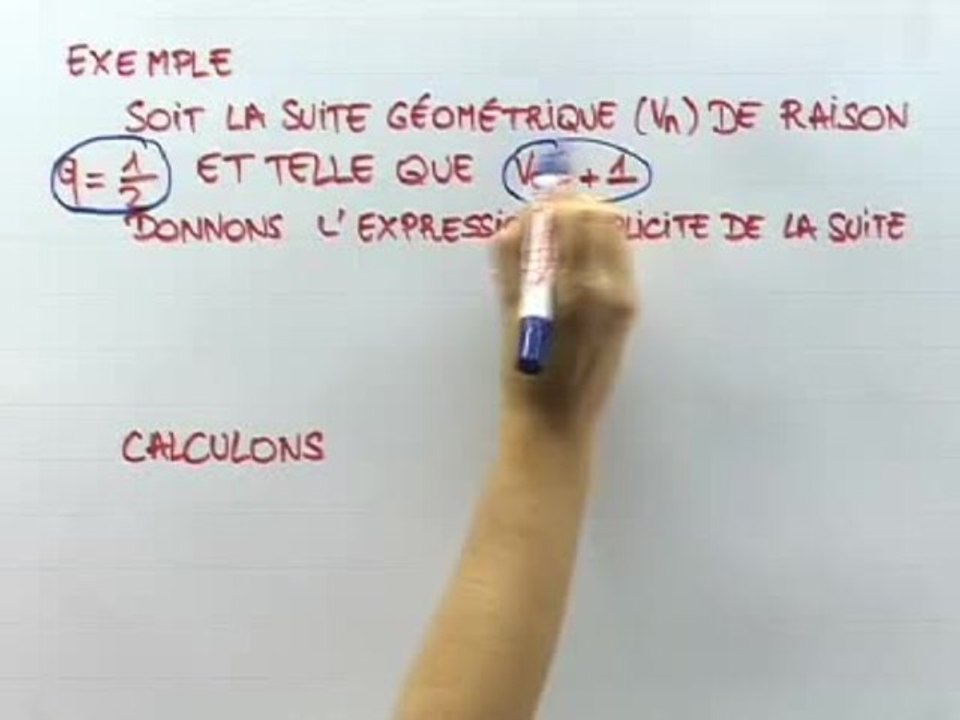 EXEMPLE
SOIT LA SUITE GÉOMÉTRIQUE (Vn) DE RAISON
q = 1/2 ET TELLE QUE + 1
DONNONS L' DE LA SUITE
CALCULONS